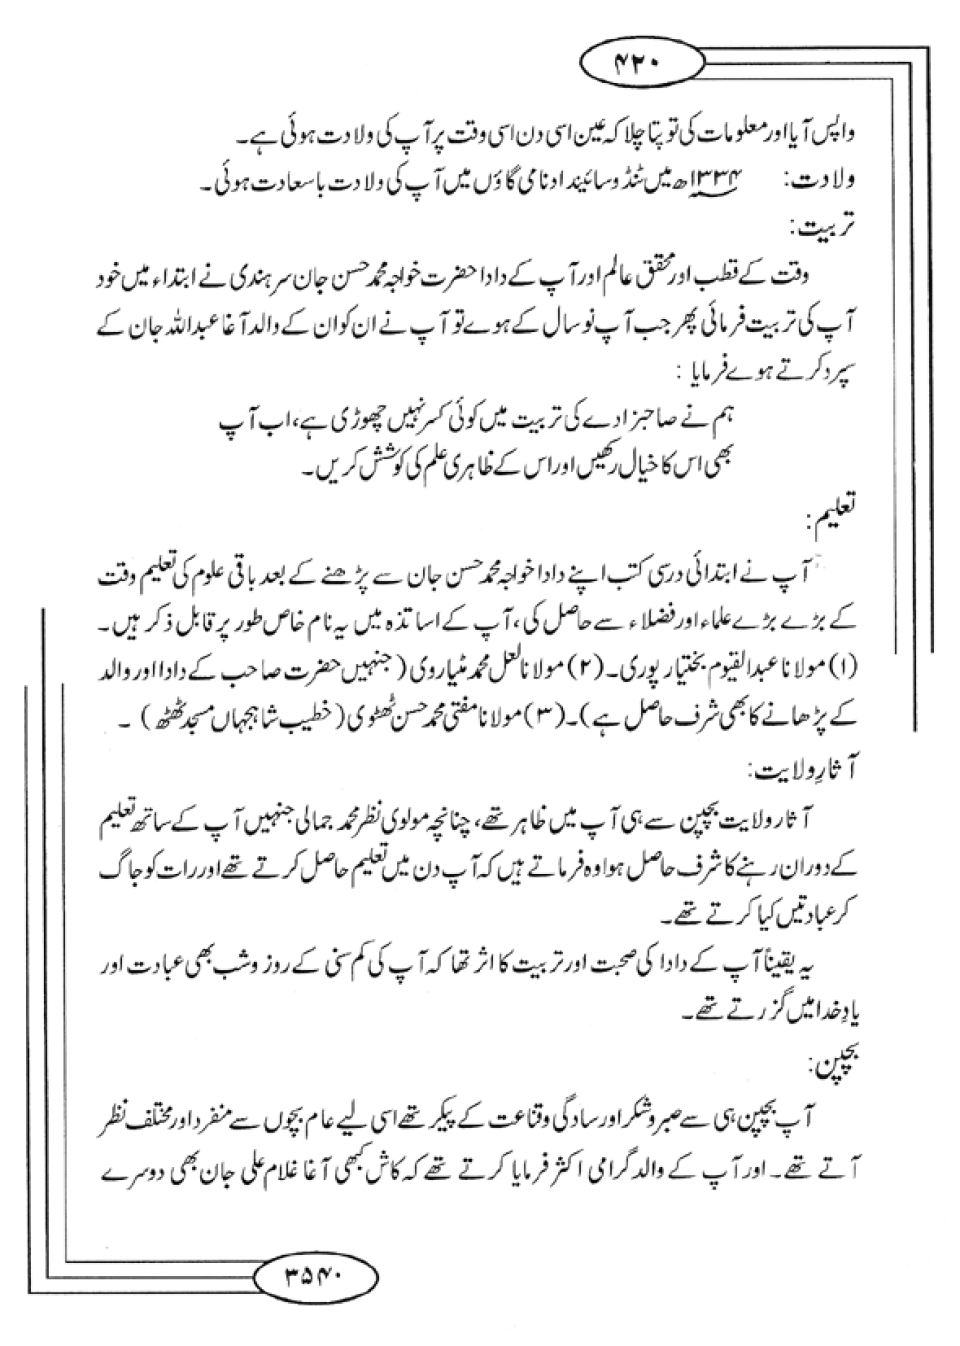 ۴۲۰
واپس آیا اور معلومات کی تو پتا چلا کہ عین اسی دن اسی وقت پر آپ کی ولادت ہوئی ہے۔
ولادت: ۱۳۳۴ھ میں ٹنڈو سائینداد نامی گاؤں میں آپ کی ولادت باسعادت ہوئی۔
تربیت:
وقت کے قطب اور محقق عالم اور آپ کے دادا حضرت خواجہ محمد حسن جان سرہندی نے ابتداء میں خود
آپ کی تربیت فرمائی پھر جب آپ نو سال کے ہوے تو آپ نے ان کو ان کے والد آغا عبداللہ جان کے
سپرد کرتے ہوے فرمایا :
ہم نے صاحبزادے کی تربیت میں کوئی کسر نہیں چھوڑی ہے، اب آپ
بھی اس کا خیال رکھیں اور اس کے ظاہری علم کی کوشش کریں۔
تعلیم:
آپ نے ابتدائی درسی کتب اپنے دادا خواجہ محمد حسن جان سے پڑھنے کے بعد باقی علوم کی تعلیم وقت
کے بڑے بڑے علماء اور فضلاء سے حاصل کی، آپ کے اساتذہ میں یہ نام خاص طور پر قابل ذکر ہیں۔
(۱) مولانا عبدالقیوم بختیار پوری۔ (۲) مولانا لعل محمد مٹیاروی (جنہیں حضرت صاحب کے دادا اور والد
کے پڑھانے کا بھی شرف حاصل ہے)۔ (۳) مولانا مفتی محمد حسن ٹھٹوی (خطیب شاہجہاں مسجد ٹھٹھ) ۔
آثارِ ولایت:
آثار ولایت بچپن سے ہی آپ میں ظاہر تھے، چنانچہ مولوی نظر محمد جمالی جنہیں آپ کے ساتھ تعلیم
کے دوران رہنے کا شرف حاصل ہوا وہ فرماتے ہیں کہ آپ دن میں تعلیم حاصل کرتے تھے اور رات کو جاگ
کر عبادتیں کیا کرتے تھے۔
یہ یقیناً آپ کے دادا کی صحبت اور تربیت کا اثر تھا کہ آپ کی کم سنی کے روز وشب بھی عبادت اور
یادِ خدا میں گزرتے تھے۔
بچپن:
آپ بچپن ہی سے صبر و شکر اور سادگی و قناعت کے پیکر تھے اسی لیے عام بچوں سے منفرد اور مختلف نظر
آتے تھے۔ اور آپ کے والد گرامی اکثر فرمایا کرتے تھے کہ کاش کبھی آغا غلام علی جان بھی دوسرے
۳۵۴۰